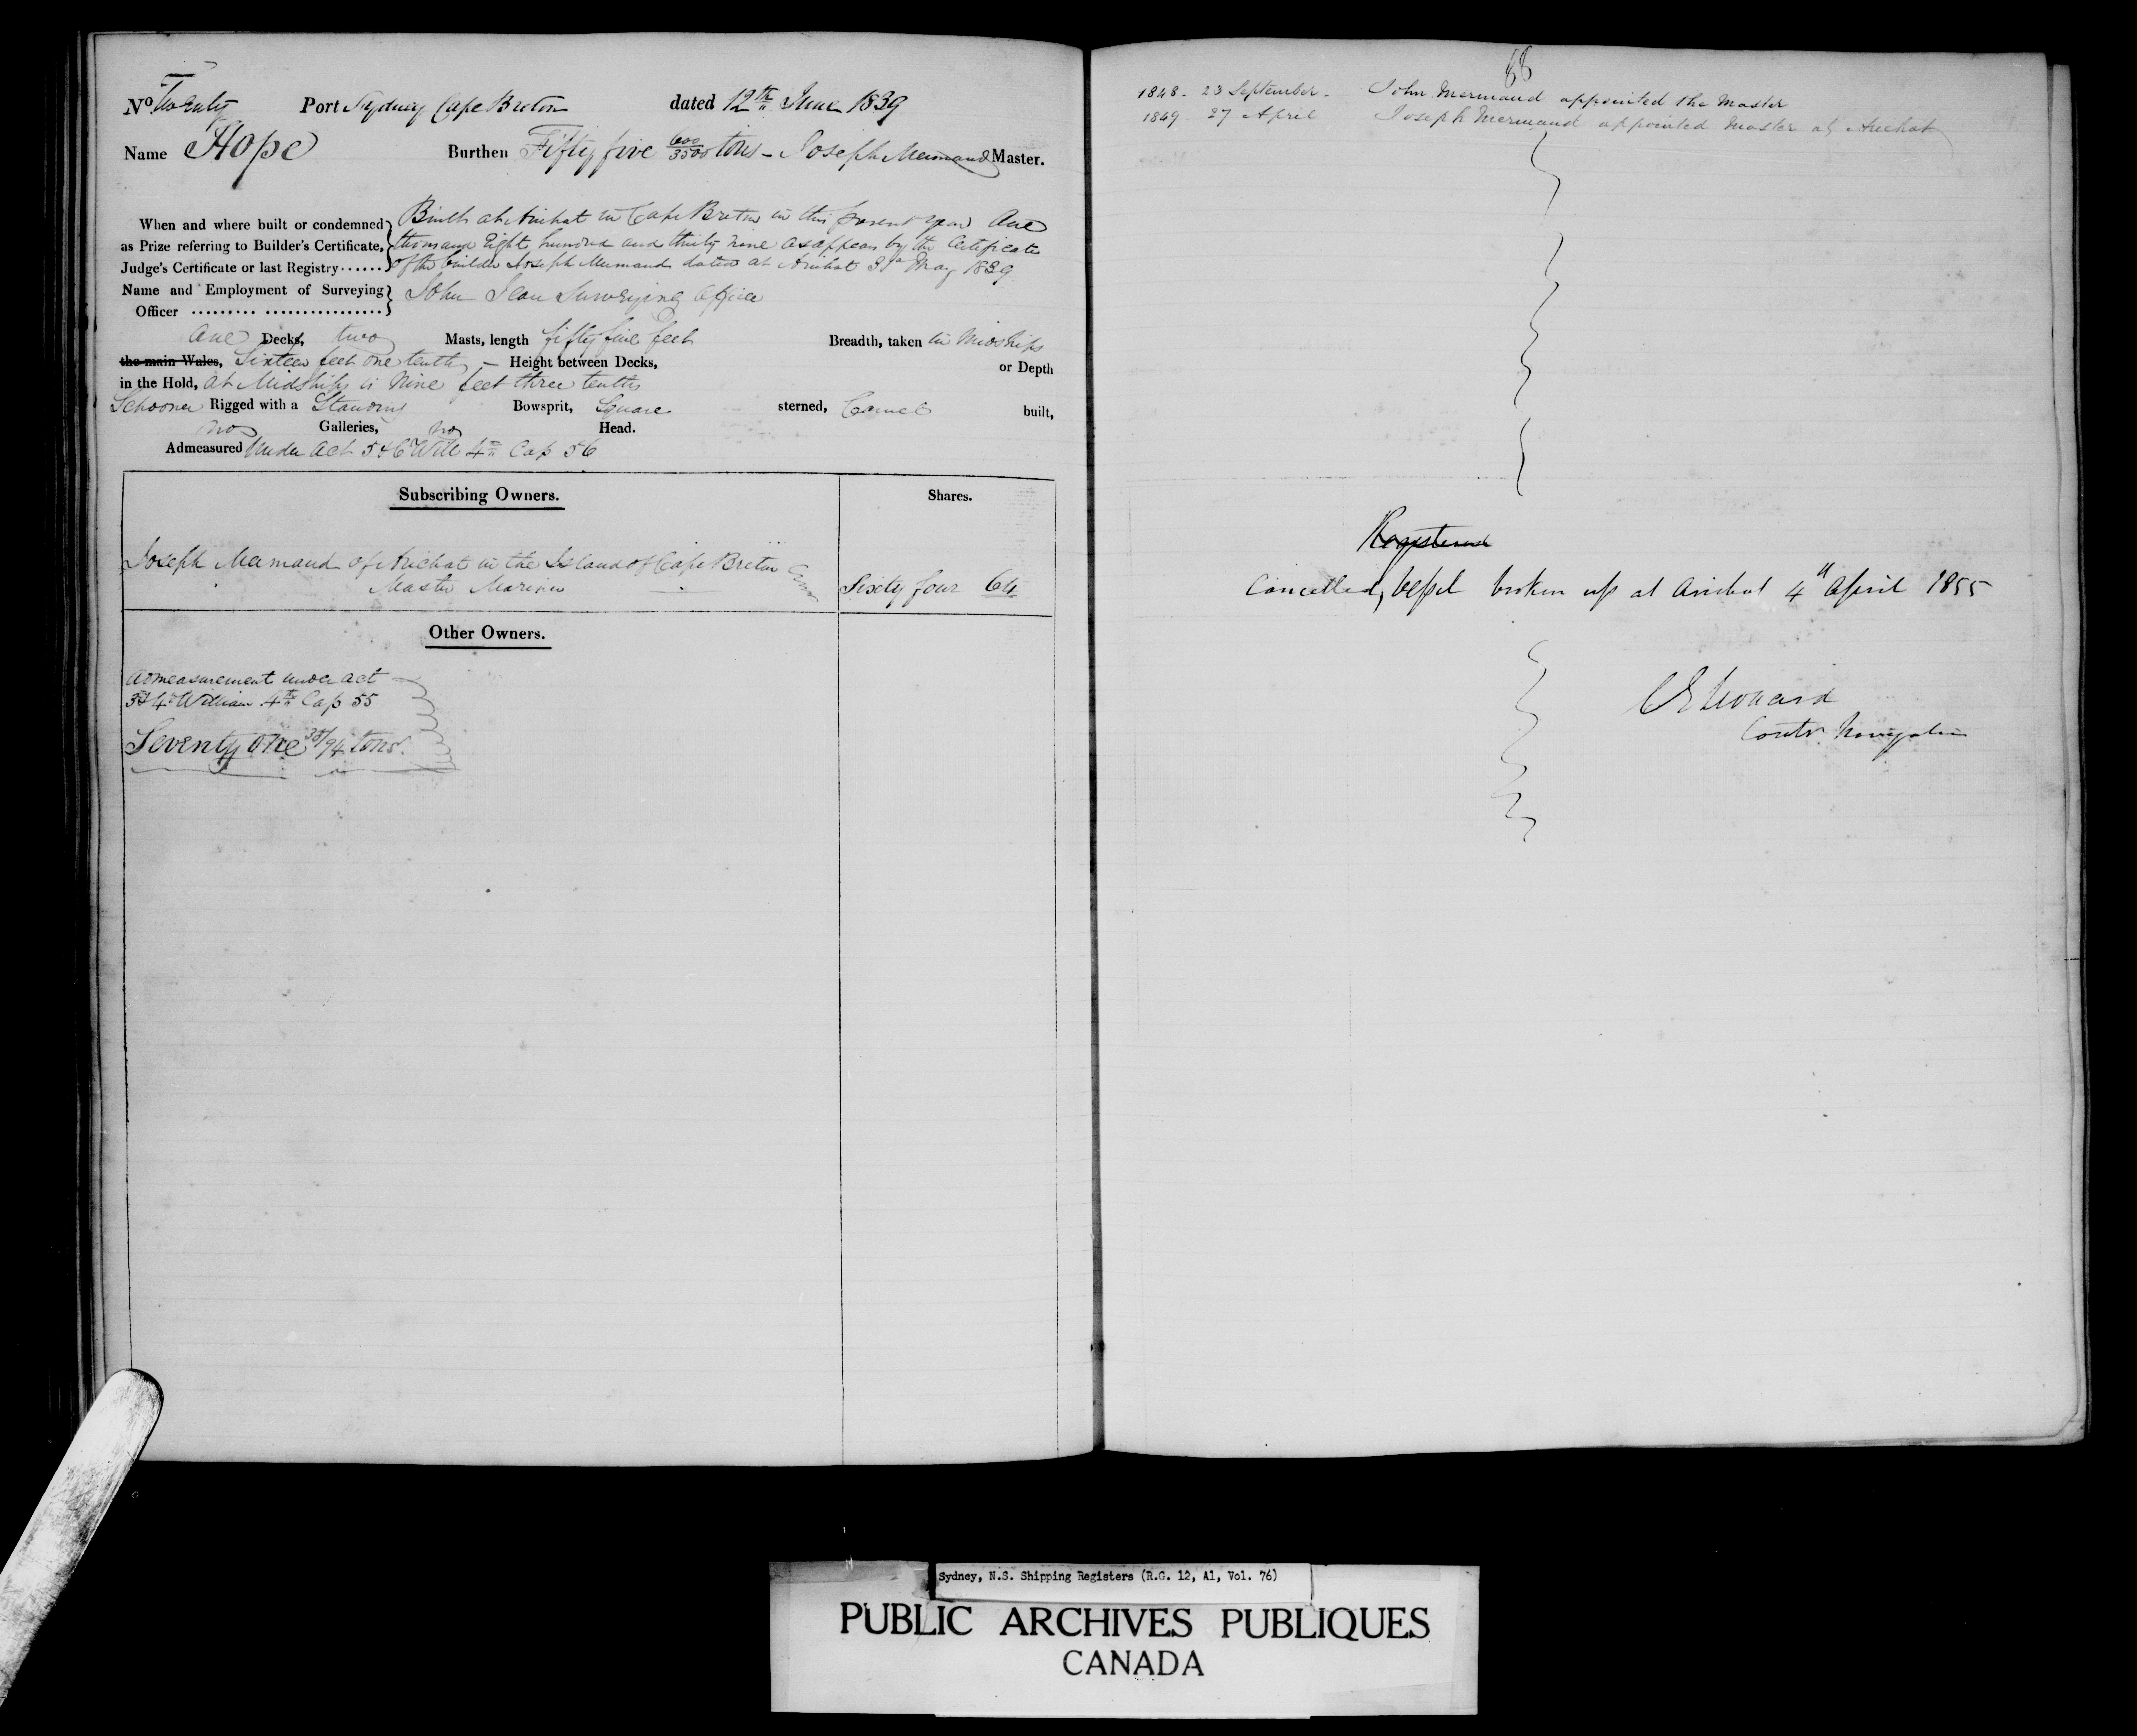 No Twenty Port Sydney Cape Breton dated 12th June 1839
Name Hope Burthen Fifty five 600/3500 tons - Joseph Mermaud Master.
When and where built or condemned as Prize referring to Builder's Certificate, Judge's Certificate or last Registry......
Built at Arichat in Cape Breton in this present year One
thousand Eight hundred and thirty nine as appears by the Certificate
of the builder Joseph Mermaud dated at Arichat 31st May 1839
Name and Employment of Surveying Officer
John Jean Surveying Officer
One Decks, two Masts, length fifty five feet Breadth, taken in Midships
the main Wales, Sixteen feet one tenth - Height between Decks, or Depth
in the Hold, at Midships is Nine feet three tenths
Schooner Rigged with a Standing Bowsprit, Square sterned, Carvel built,
no Galleries, no Head.
Admeasured Under Act 5 & 6 Will 4th Cap 56
Subscribing Owners. Shares.
Joseph Mermaud of Arichat in the Island of Cape Breton
Master Mariner Sixty four 64
Other Owners.
admeasurement under act
3d & 4th William 4th Cap 55
Seventy One 38/94 tons.
88
1848 - 23 September - John Mermaud appointed the Master
1849 27 April Joseph Mermaud appointed Master at Arichat
Registered
Cancelled, Vessel broken up at Arichat 4th April 1855
Leonard
Contr Navigation
Sydney, N.S. Shipping Registers (R.G. 12, A1, Vol. 76)
PUBLIC ARCHIVES PUBLIQUES
CANADA